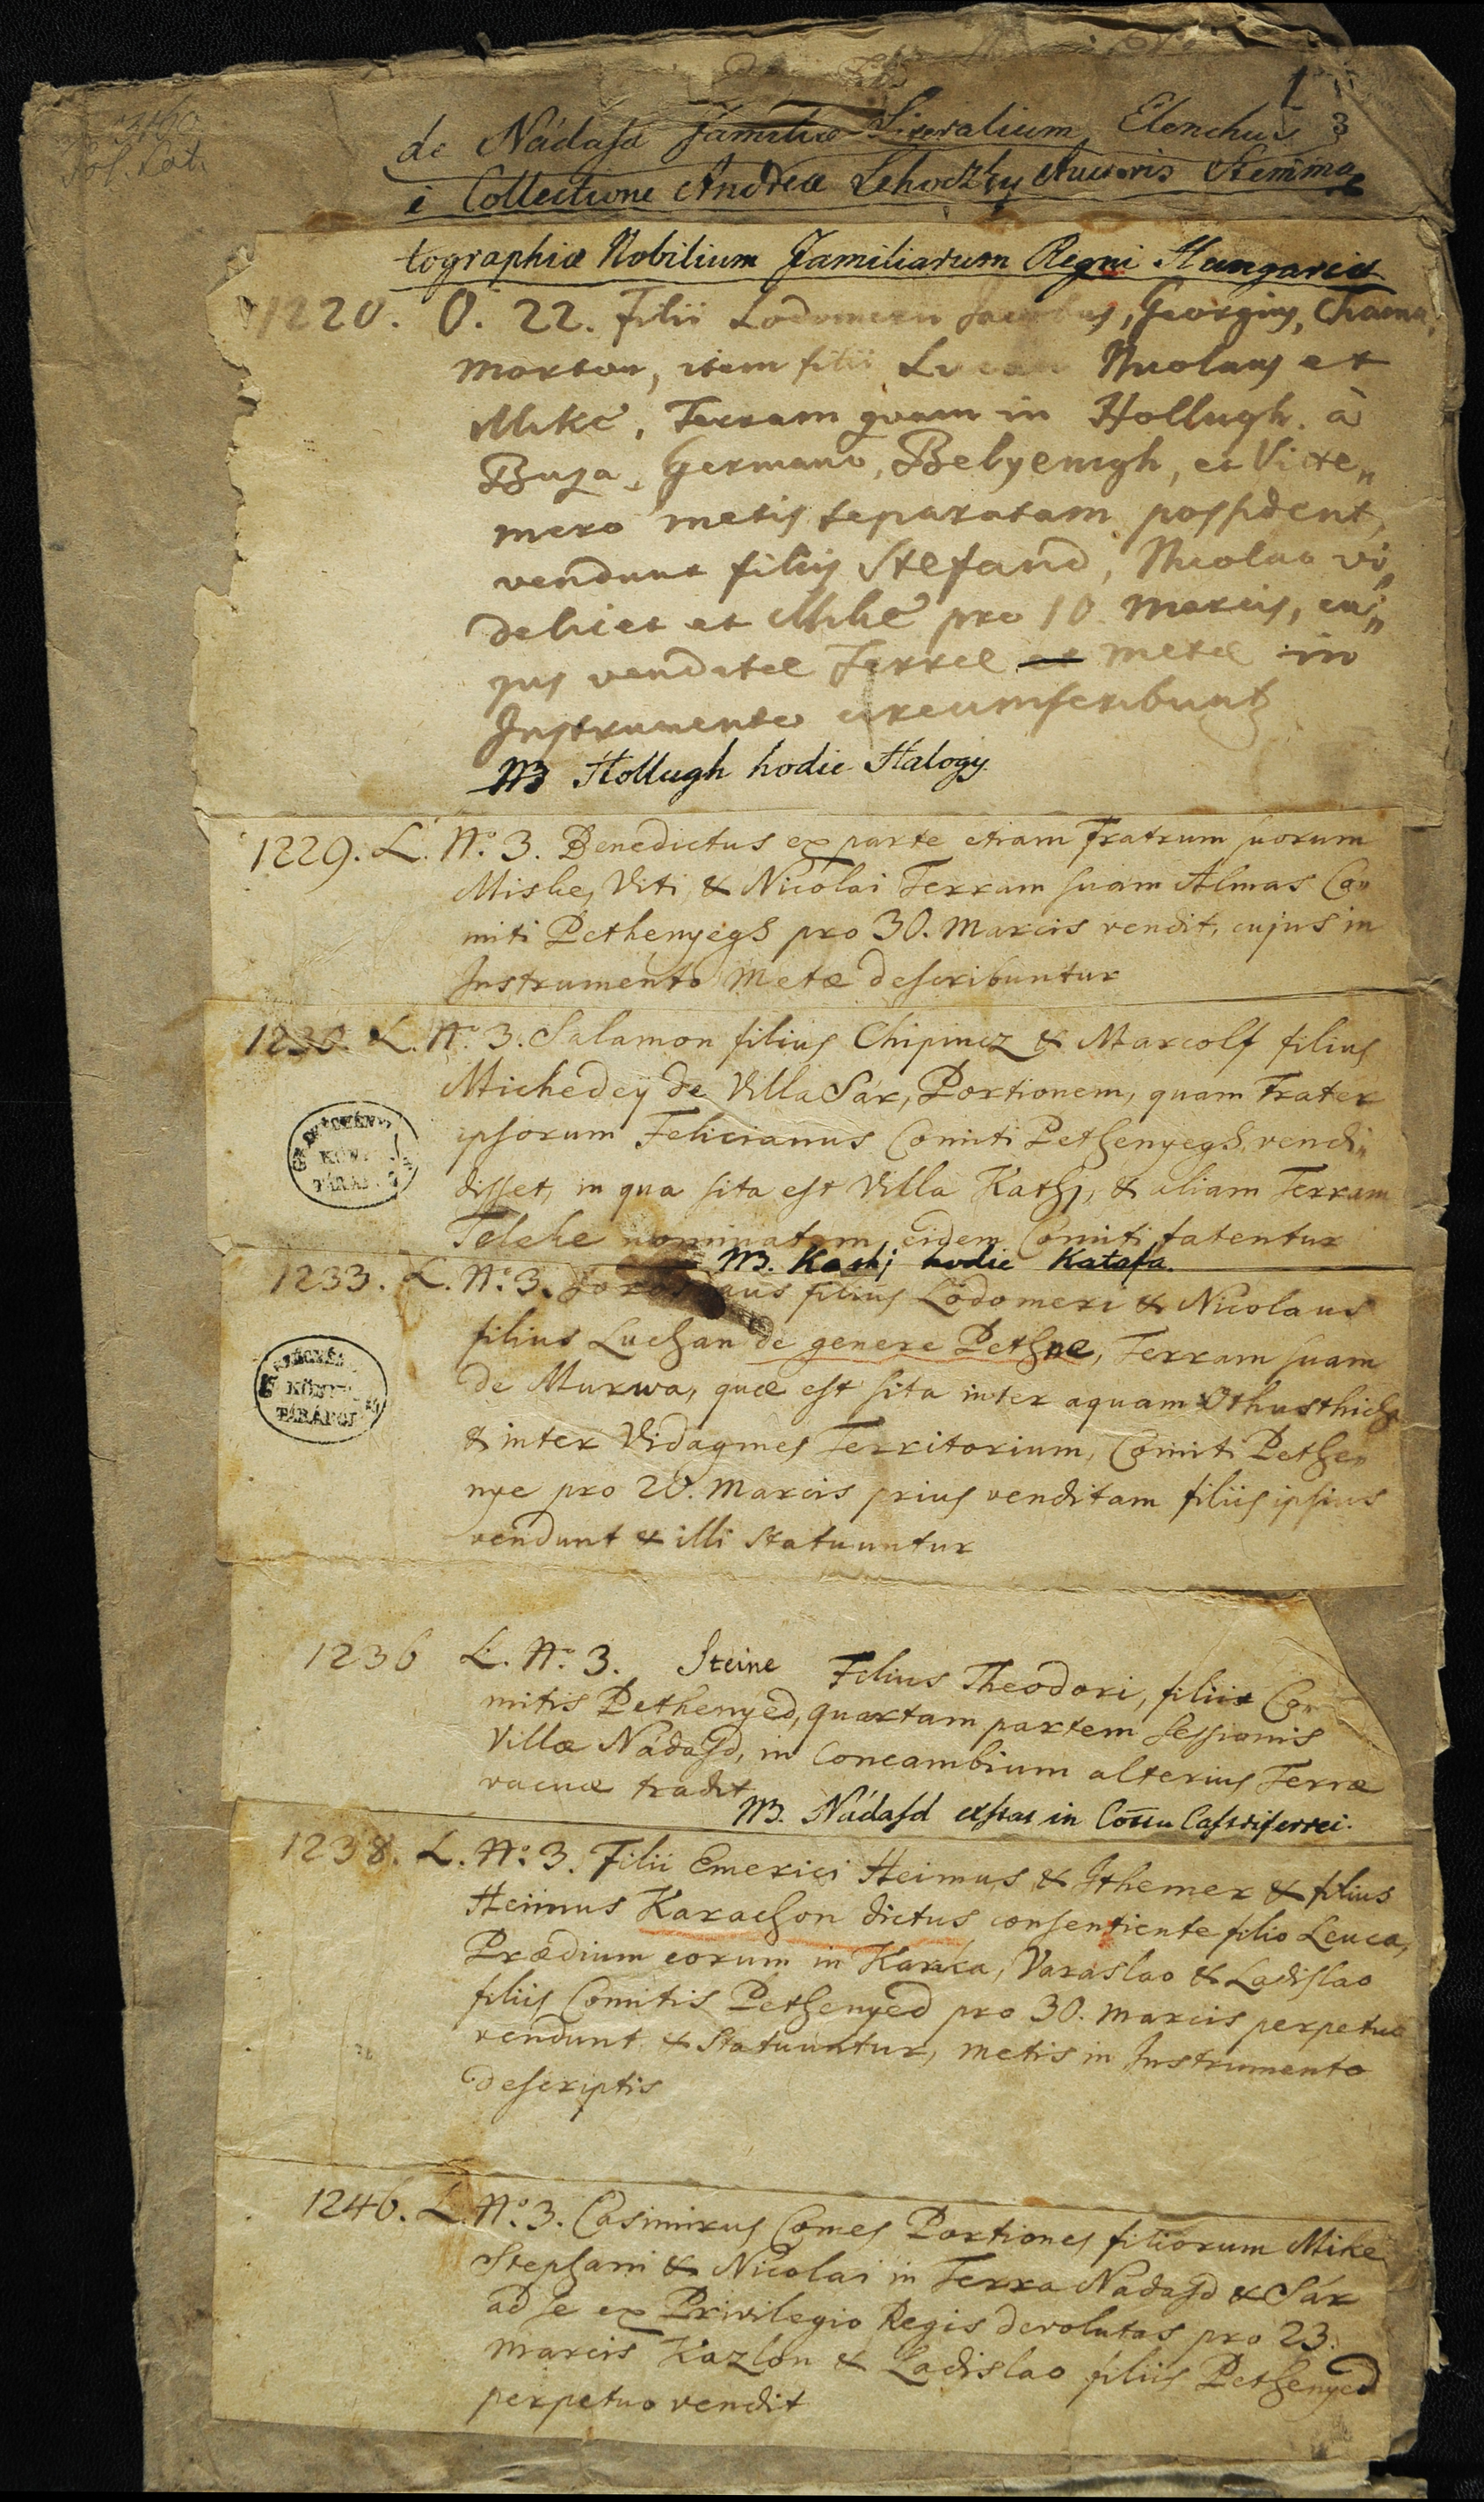 1
3
de Nádasd Familiæ Literalium Elenchus
è Collectione Andreæ Lehoczky Auctoris Stemma
tographiæ Nobilium Familiarum Regni Hungariæ
1220. O. 22. Filii Lodomeri Jacobus, Georgius, Chama,
Morton, item filii Lucan Nicolaus et
Mike, Terram quam in Hollugh. à
Buza, Germano, Bebyenigh, et Vite„
mero metis separatam possident,
vendunt filiis Stefani, Nicolao vi„
delicet et Mike pro 10 Marcis, cu„
jus venditæ Terræ metæ in
Instrumento circumscribunt
NB Hollugh hodie Halogy.
1229. L. No. 3. Benedictus ex parte etiam Fratrum suorum
Miske, Viti, & Nicolai Terram suam Almas Co„
miti Pethenyegh pro 30. Marcis vendit, cujus in
Instrumento Metæ describuntur
1230. L. No. 3. Salamon filius Chipincz & Marcolf filius
Michedey de Villa Sár, Portionem, quam Frater
ipsorum Felicianus Comiti Pethenyegh vendi„
disset, in qua sita est Villa Kathj, & aliam Terram
Teleke nominatam, eidem Comiti fatentur
NB. Kathj hodie Katafa.
ORSZÁGGYŰLÉSI
KÖNYV
TÁRÁBÓL
1233. L. No. 3. filius Lodomeri & Nicolaus
filius Luchan de genere Pethne, Terram suam
de Murwa, quæ est sita inter aquam Othusthich
& inter Vidagmes Territorium, Comiti Pethe„
nye pro 20. Marcis prius venditam filiis ipsius
vendunt & illi statuuntur
KÖNYV
TÁRÁBÓL
1236 L. No. 3. Steine Filius Theodori, filiis Co„
mitis Pethenyed, quartam partem sessionis
Villæ Nádasd, in Concambium alterius Terræ
vacuæ tradit
NB. Nádasd exstat in Cottu Castriferrei.
1238. L. No. 3. Filii Emerici Heimus & Ithemer & filius
Heimus Karachon dictus consentiente filio Leuca,
Prædium eorum in Karka, Varaslao & Ladislao
filiis Comitis Pethenyed pro 30. marcis perpetuo
vendunt & statuuntur, metis in Instrumento
descriptis
1246. L. No. 3. Casimirus Comes Portiones filiorum Mike
Stephani & Nicolai in Terra Nadasd & Sár
ad se ex Privilegio Regis devolutas pro 23.
marcis Kazlou & Ladislao filiis Pethenyed
perpetuo vendit